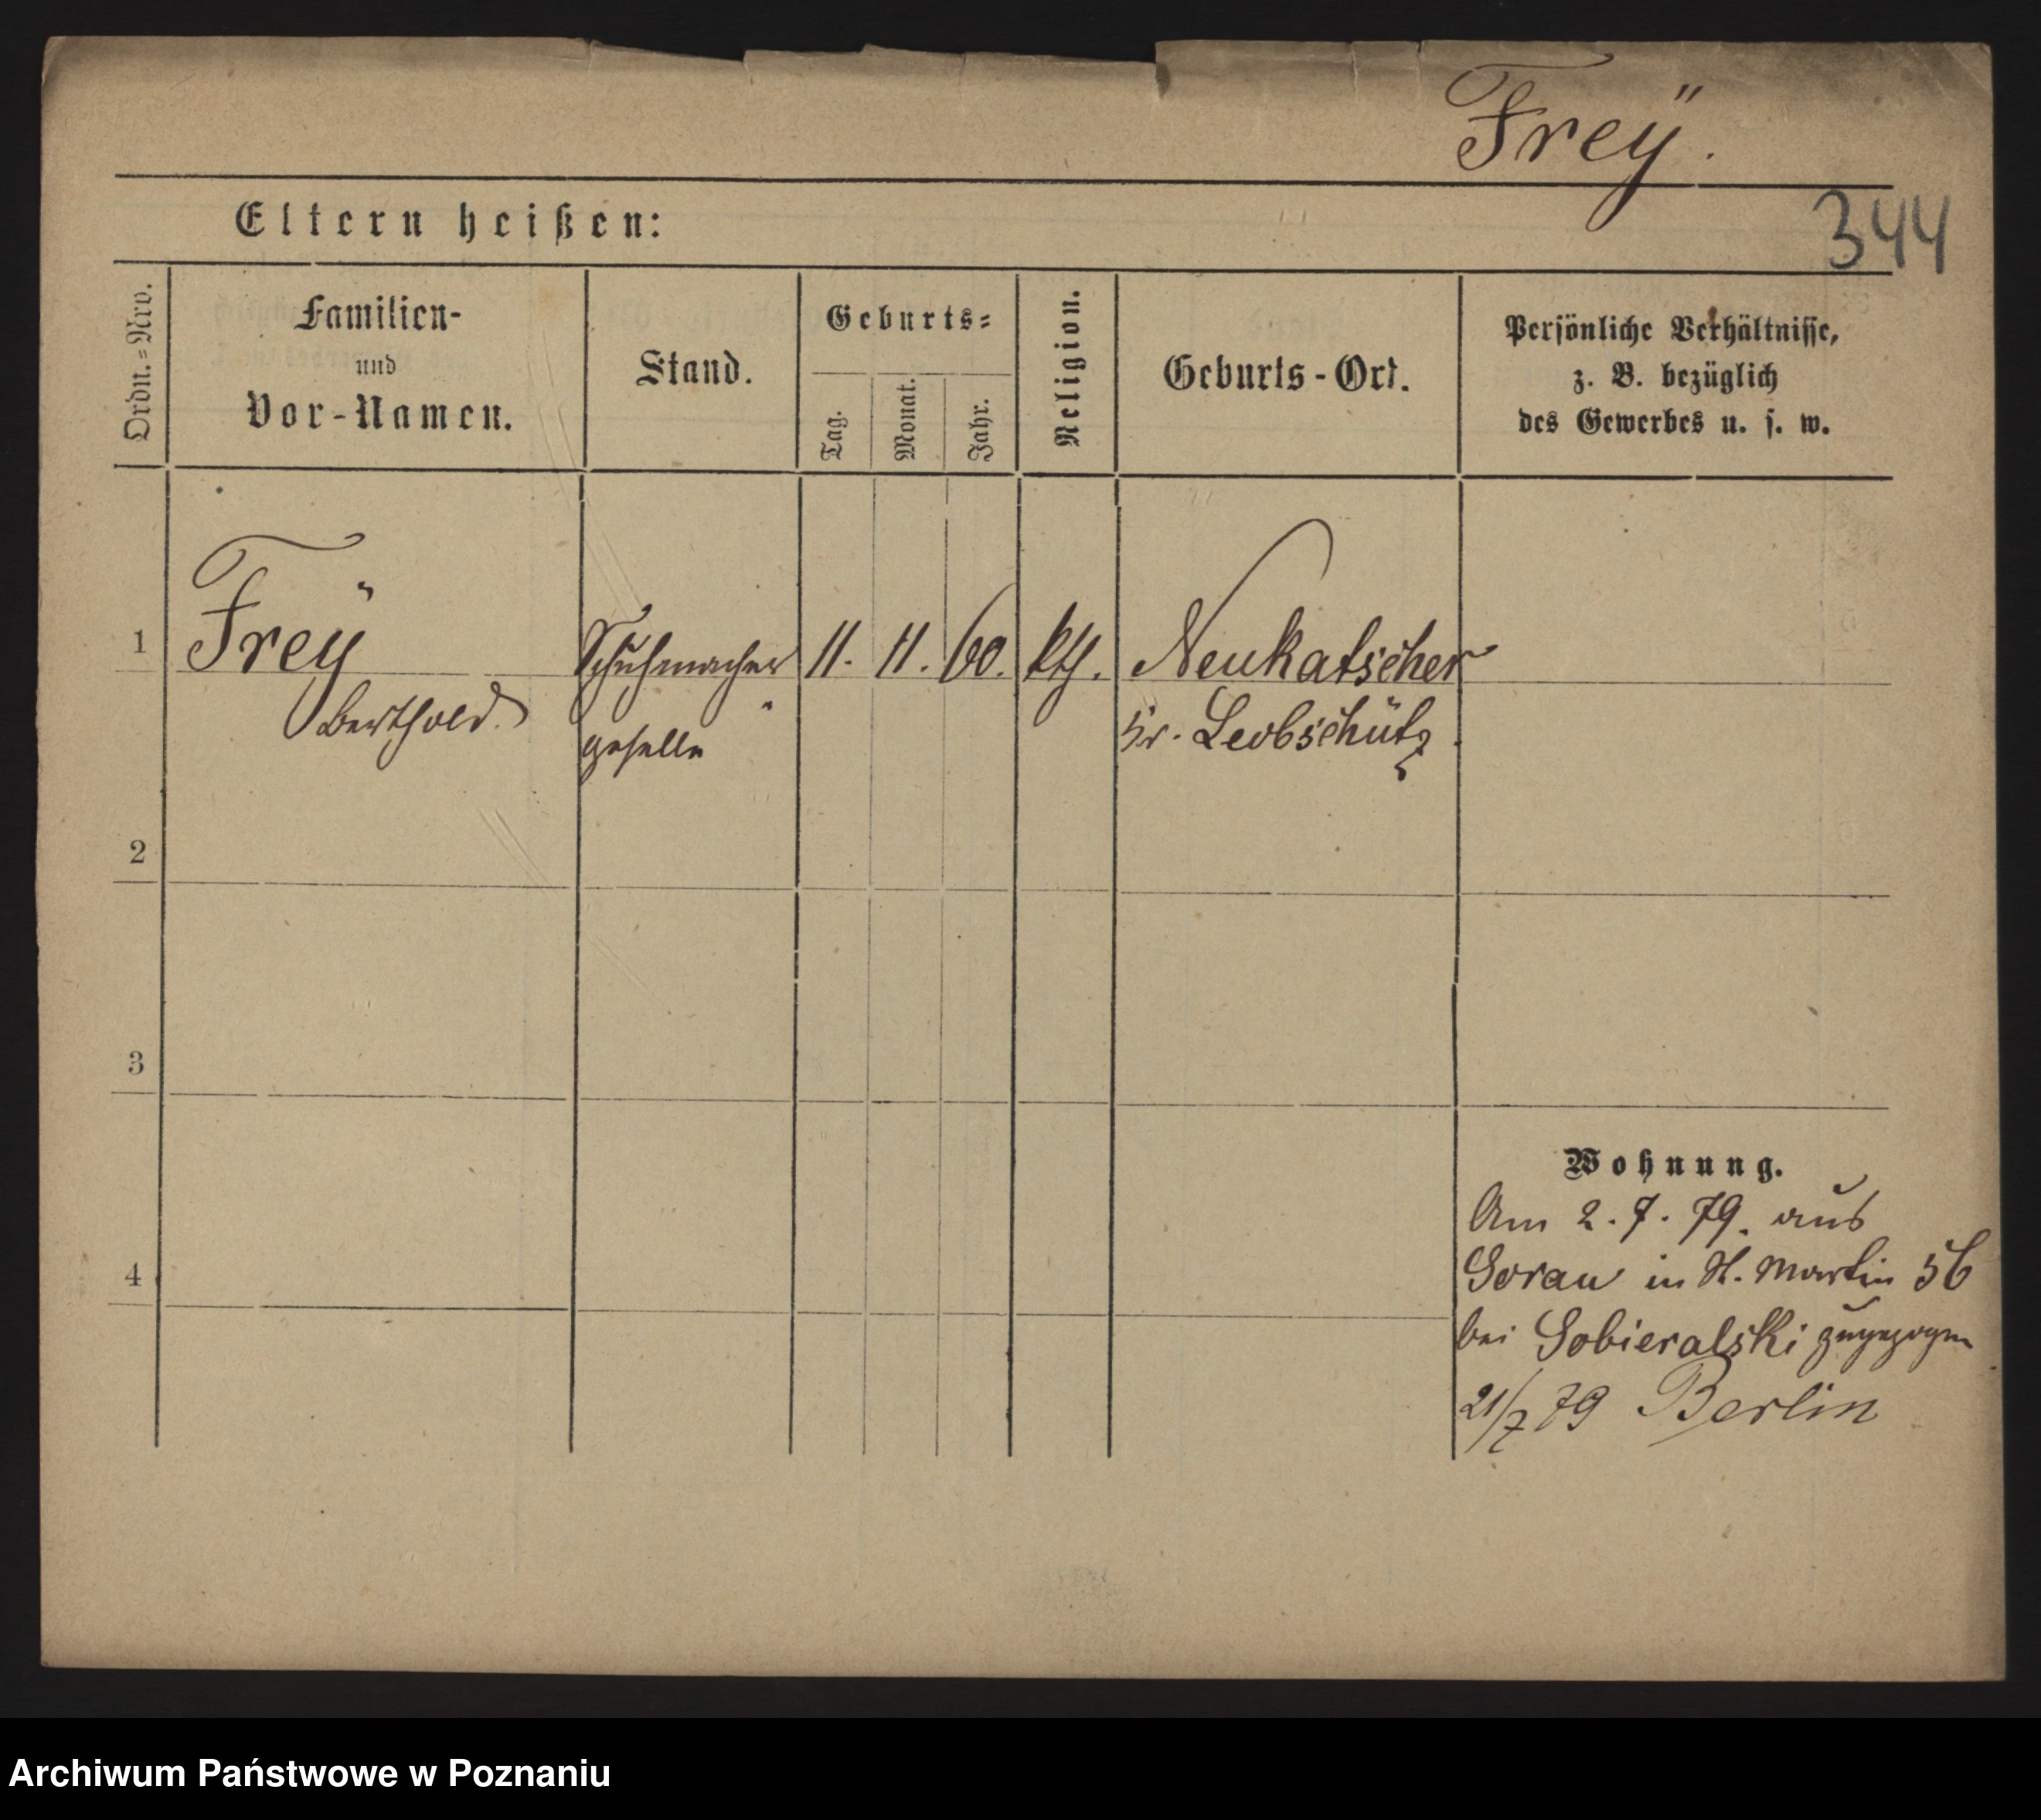 Freÿ.
344
Eltern heißen:
Ordn.-Nro.
Familien-
und
Vor-Namen.
Stand.
Geburts-
Tag.
Monat.
Jahr.
Religion.
Geburts-Ort.
Persönliche Verhältnisse,
z. B. bezüglich
des Gewerbes u. s. w.
1 Freÿ Schuhmacher 11. 11. 60. kth. Neukatscher
Berthold. geselle Kr. Leobschütz.
2
3
4
Wohnung.
Am 2. 7. 79. aus
Sorau in St. Martin 56
bei Sobieralski zugezogen
21/7 79 Berlin
Archiwum Państwowe w Poznaniu